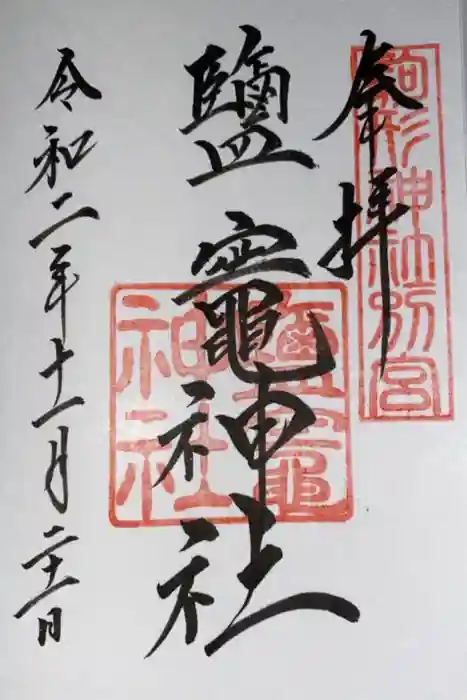 奉拝
駒形神社別宮
鹽竈神社
鹽竈
神社
令和二年十一月二十一日